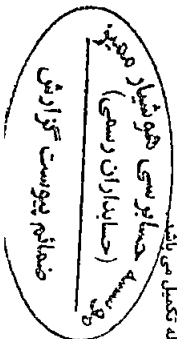 موسسه حسابرسی هوشیار ممیز
(حسابداران رسمی)
ضمائم پیوست گزارش
له تکمیل می باشد.